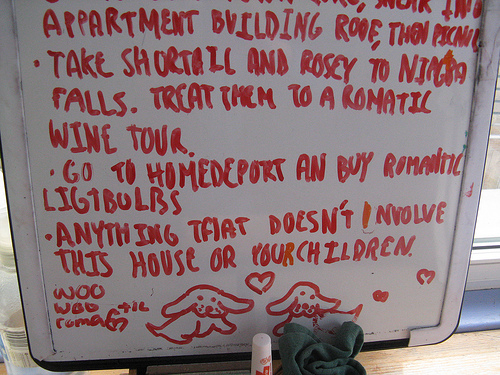 SNEAK INTO
APPARTMENT BUILDING ROOF, THEN PICNIC
• TAKE SHORTAIL AND ROSEY TO NIAGRA
FALLS. TREAT THEM TO A ROMATIC
WINE TOUR.
• GO TO HOMEDEPORT AN BUY ROMANTIC
LIGTBULBS
• ANYTHING THAT DOESN'T INVOLVE
THIS HOUSE OR YOUR CHILDREN.
WOO
WOO TIL